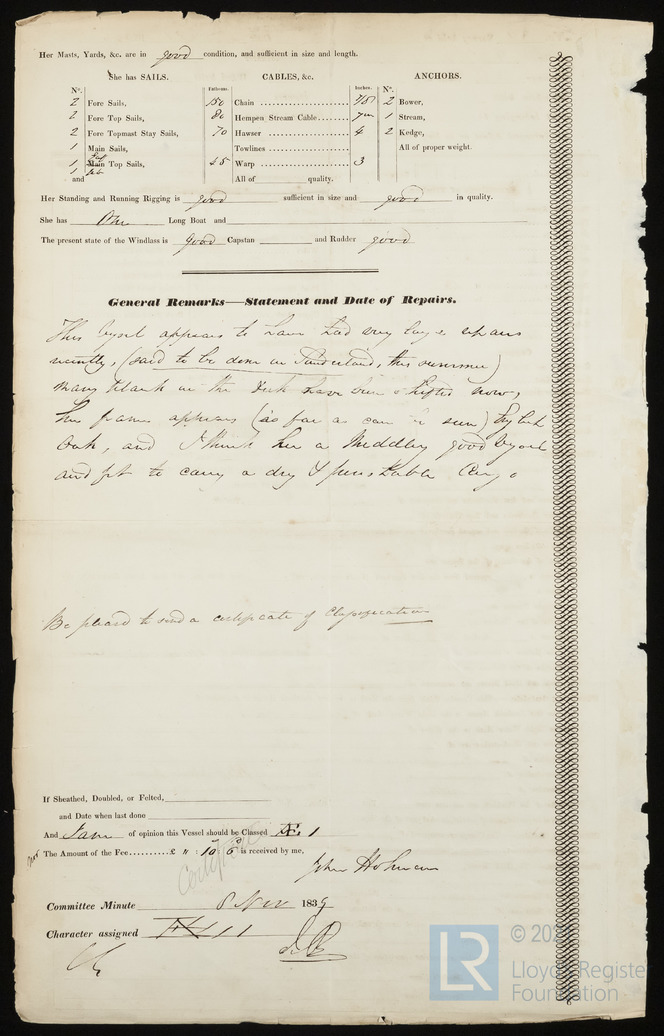 Her Masts, Yards, &c. are in good condition, and sufficient in size and length.
She has SAILS. CABLES, &c. ANCHORS.
No. Fathoms. Inches. No.
2 Fore Sails, 150 Chain 2 Bower,
2 Fore Top Sails, 80 Hempen Stream Cable 7 1 Stream,
2 Fore Topmast Stay Sails, 70 Hawser 4 2 Kedge,
1 Main Sails, Towlines All of proper weight.
1 Main Top Sails, 45 Warp 3
and All of quality.
Her Standing and Running Rigging is good sufficient in size and good in quality.
She has One Long Boat and
The present state of the Windlass is good Capstan and Rudder good
General Remarks—Statement and Date of Repairs.
This Vessel appears to have had very large repairs
recently, (said to be done in Sunderland, this summer)
many plank in the Deck have been shifted now,
her frame appears (as far as can be seen) English
Oak, and I think her a Middling good Vessel
and fit to carry a dry & perishable Cargo
Be pleased to send a certificate of Classification
If Sheathed, Doubled, or Felted,
and Date when last done
And I am of opinion this Vessel should be Classed 1
The Amount of the Fee £ " : 10 : 6 is received by me,
Certificate
John Holman
Committee Minute 8 Nov 1839
Character assigned 1
LR
© 202
Lloyd's Register
Foundation